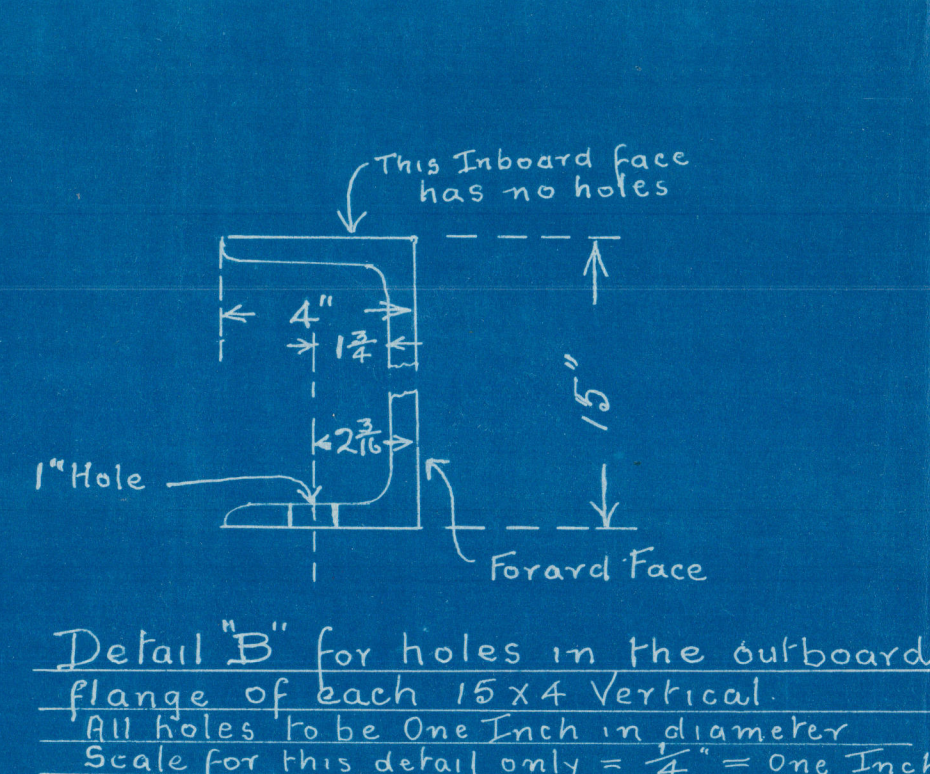 This Inboard face
has no holes
4"
1 3/4
15"
2 3/16
1" Hole
Forard Face
Detail "B" for holes in the outboard
flange of each 15 x 4 Vertical.
All holes to be One Inch in diameter
Scale for this detail only = 1/4" = One Inch